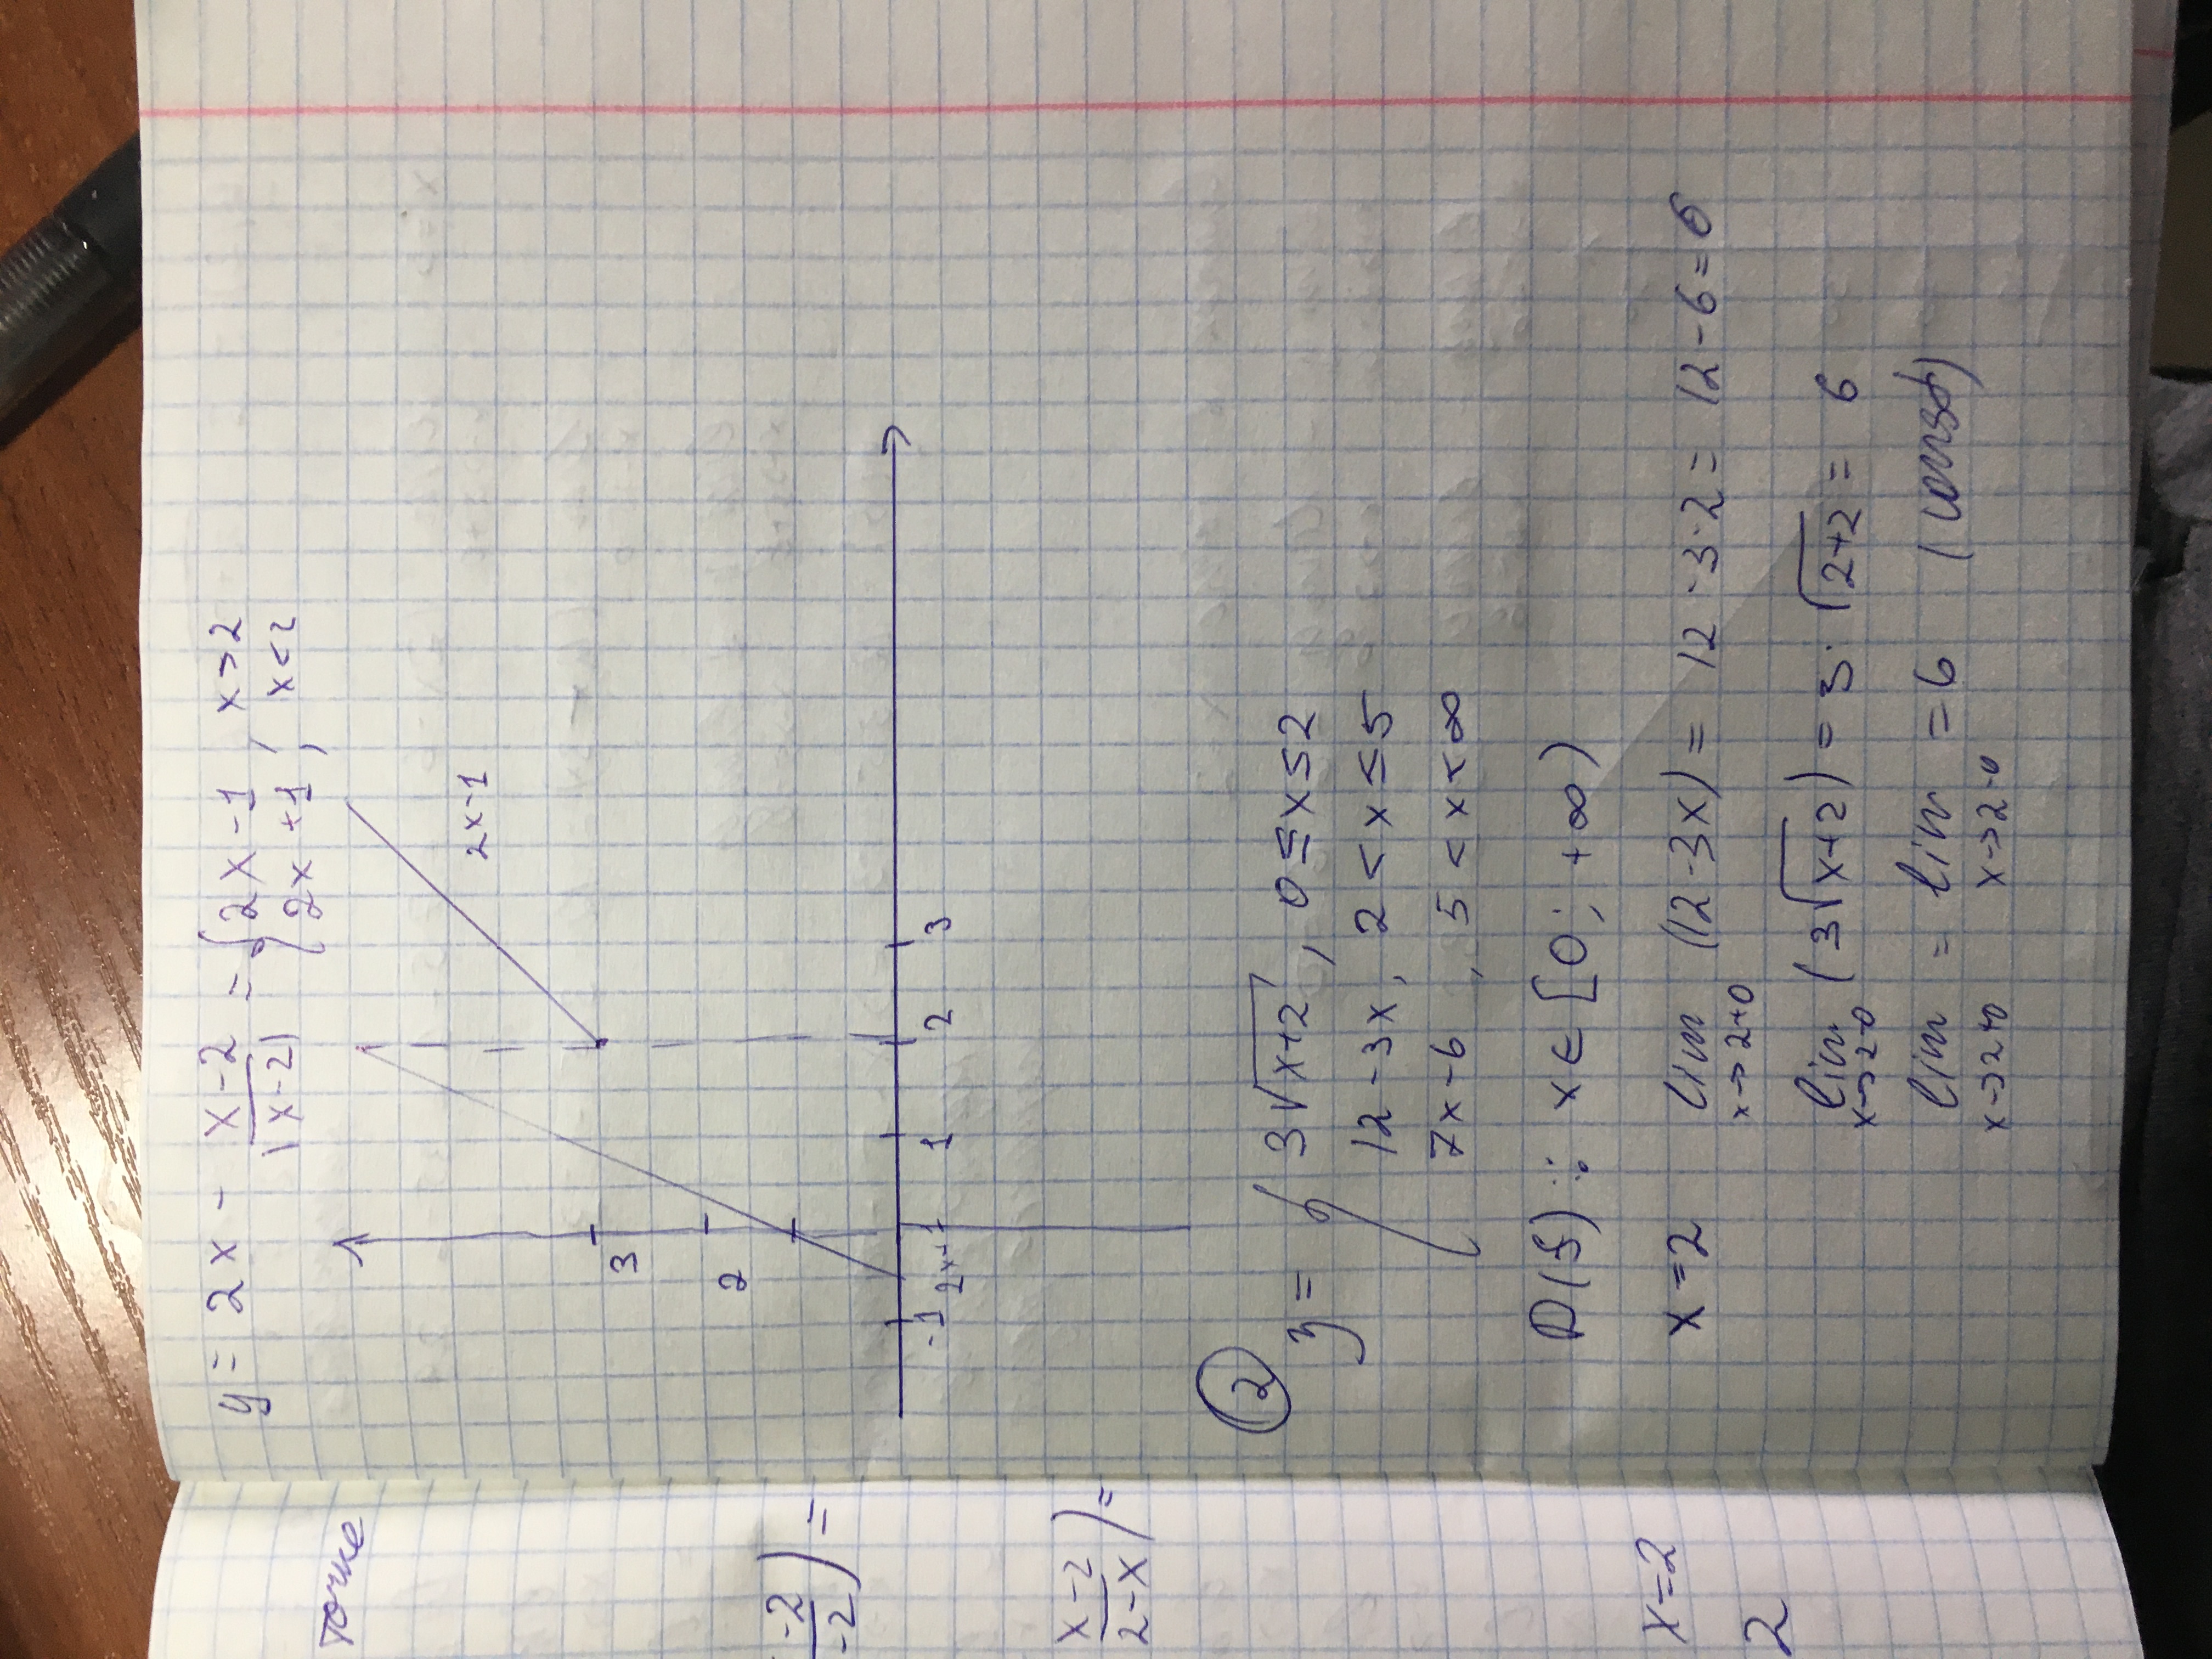 точке
-2
-2 ) =
x-2
2-x ) =
x=2
2
y = 2x - x-2 / |x-2| = { 2x-1, x>2
2x+1, x<2
2x-1
3
2
-1 2x+1 1 2 3
2
y = { 3√(x+2), 0≤x≤2
12-3x, 2<x≤5
7x-6, 5<x<∞
D(f): x∈[0; +∞)
x=2 lim (12-3x) = 12-3·2 = 12-6=6
x→2+0
lim (3√(x+2)) = 3·√(2+2) = 6
x→2-0
lim = lim = 6 (const)
x→2+0 x→2-0